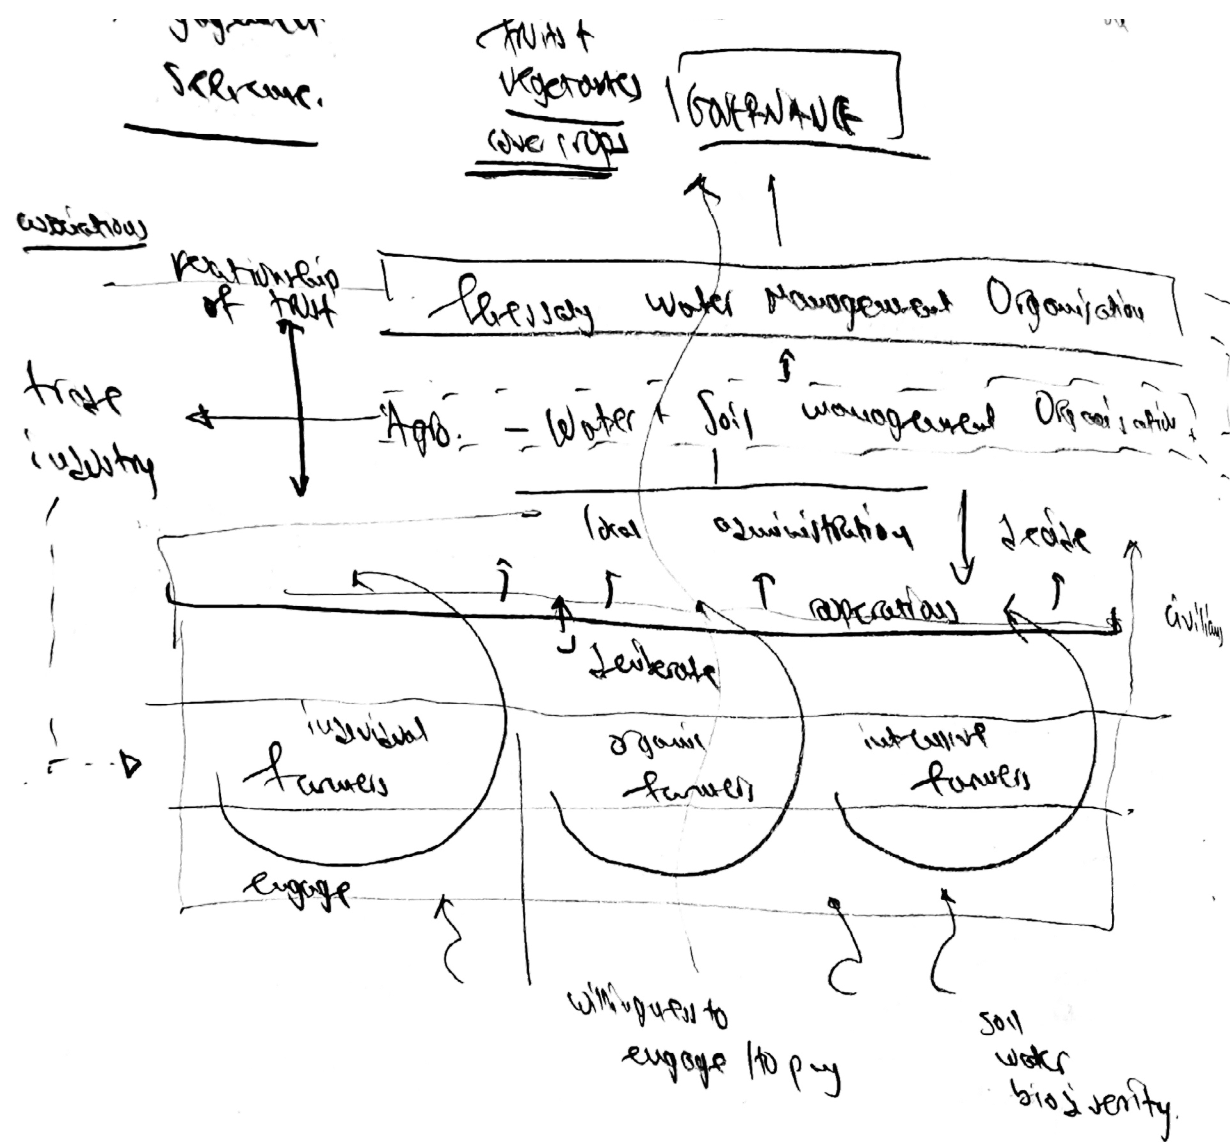 fruits +
vegetables
cover crops
GOVERNANCE
associations
relationship
of trust
Thessaly Water Management Organisation
trade
industry
Agro. - Water + Soil management Organisation
local administration
decide
operations
civilians
deliberate
individual
farmers
organic
farmers
intensive
farmers
engage
willingness to
engage / to pay
soil
water
biodiversity.